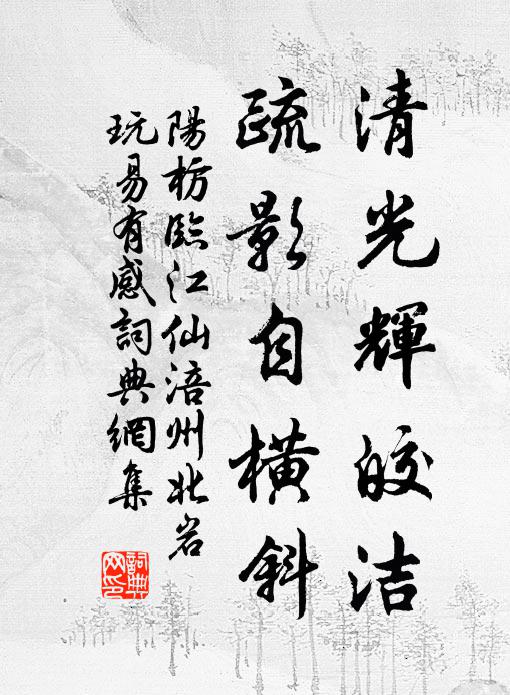 清光輝皎洁
疏影自橫斜
陽枋臨江仙涪州北岩
玩易有感詞典網集
詞典网印